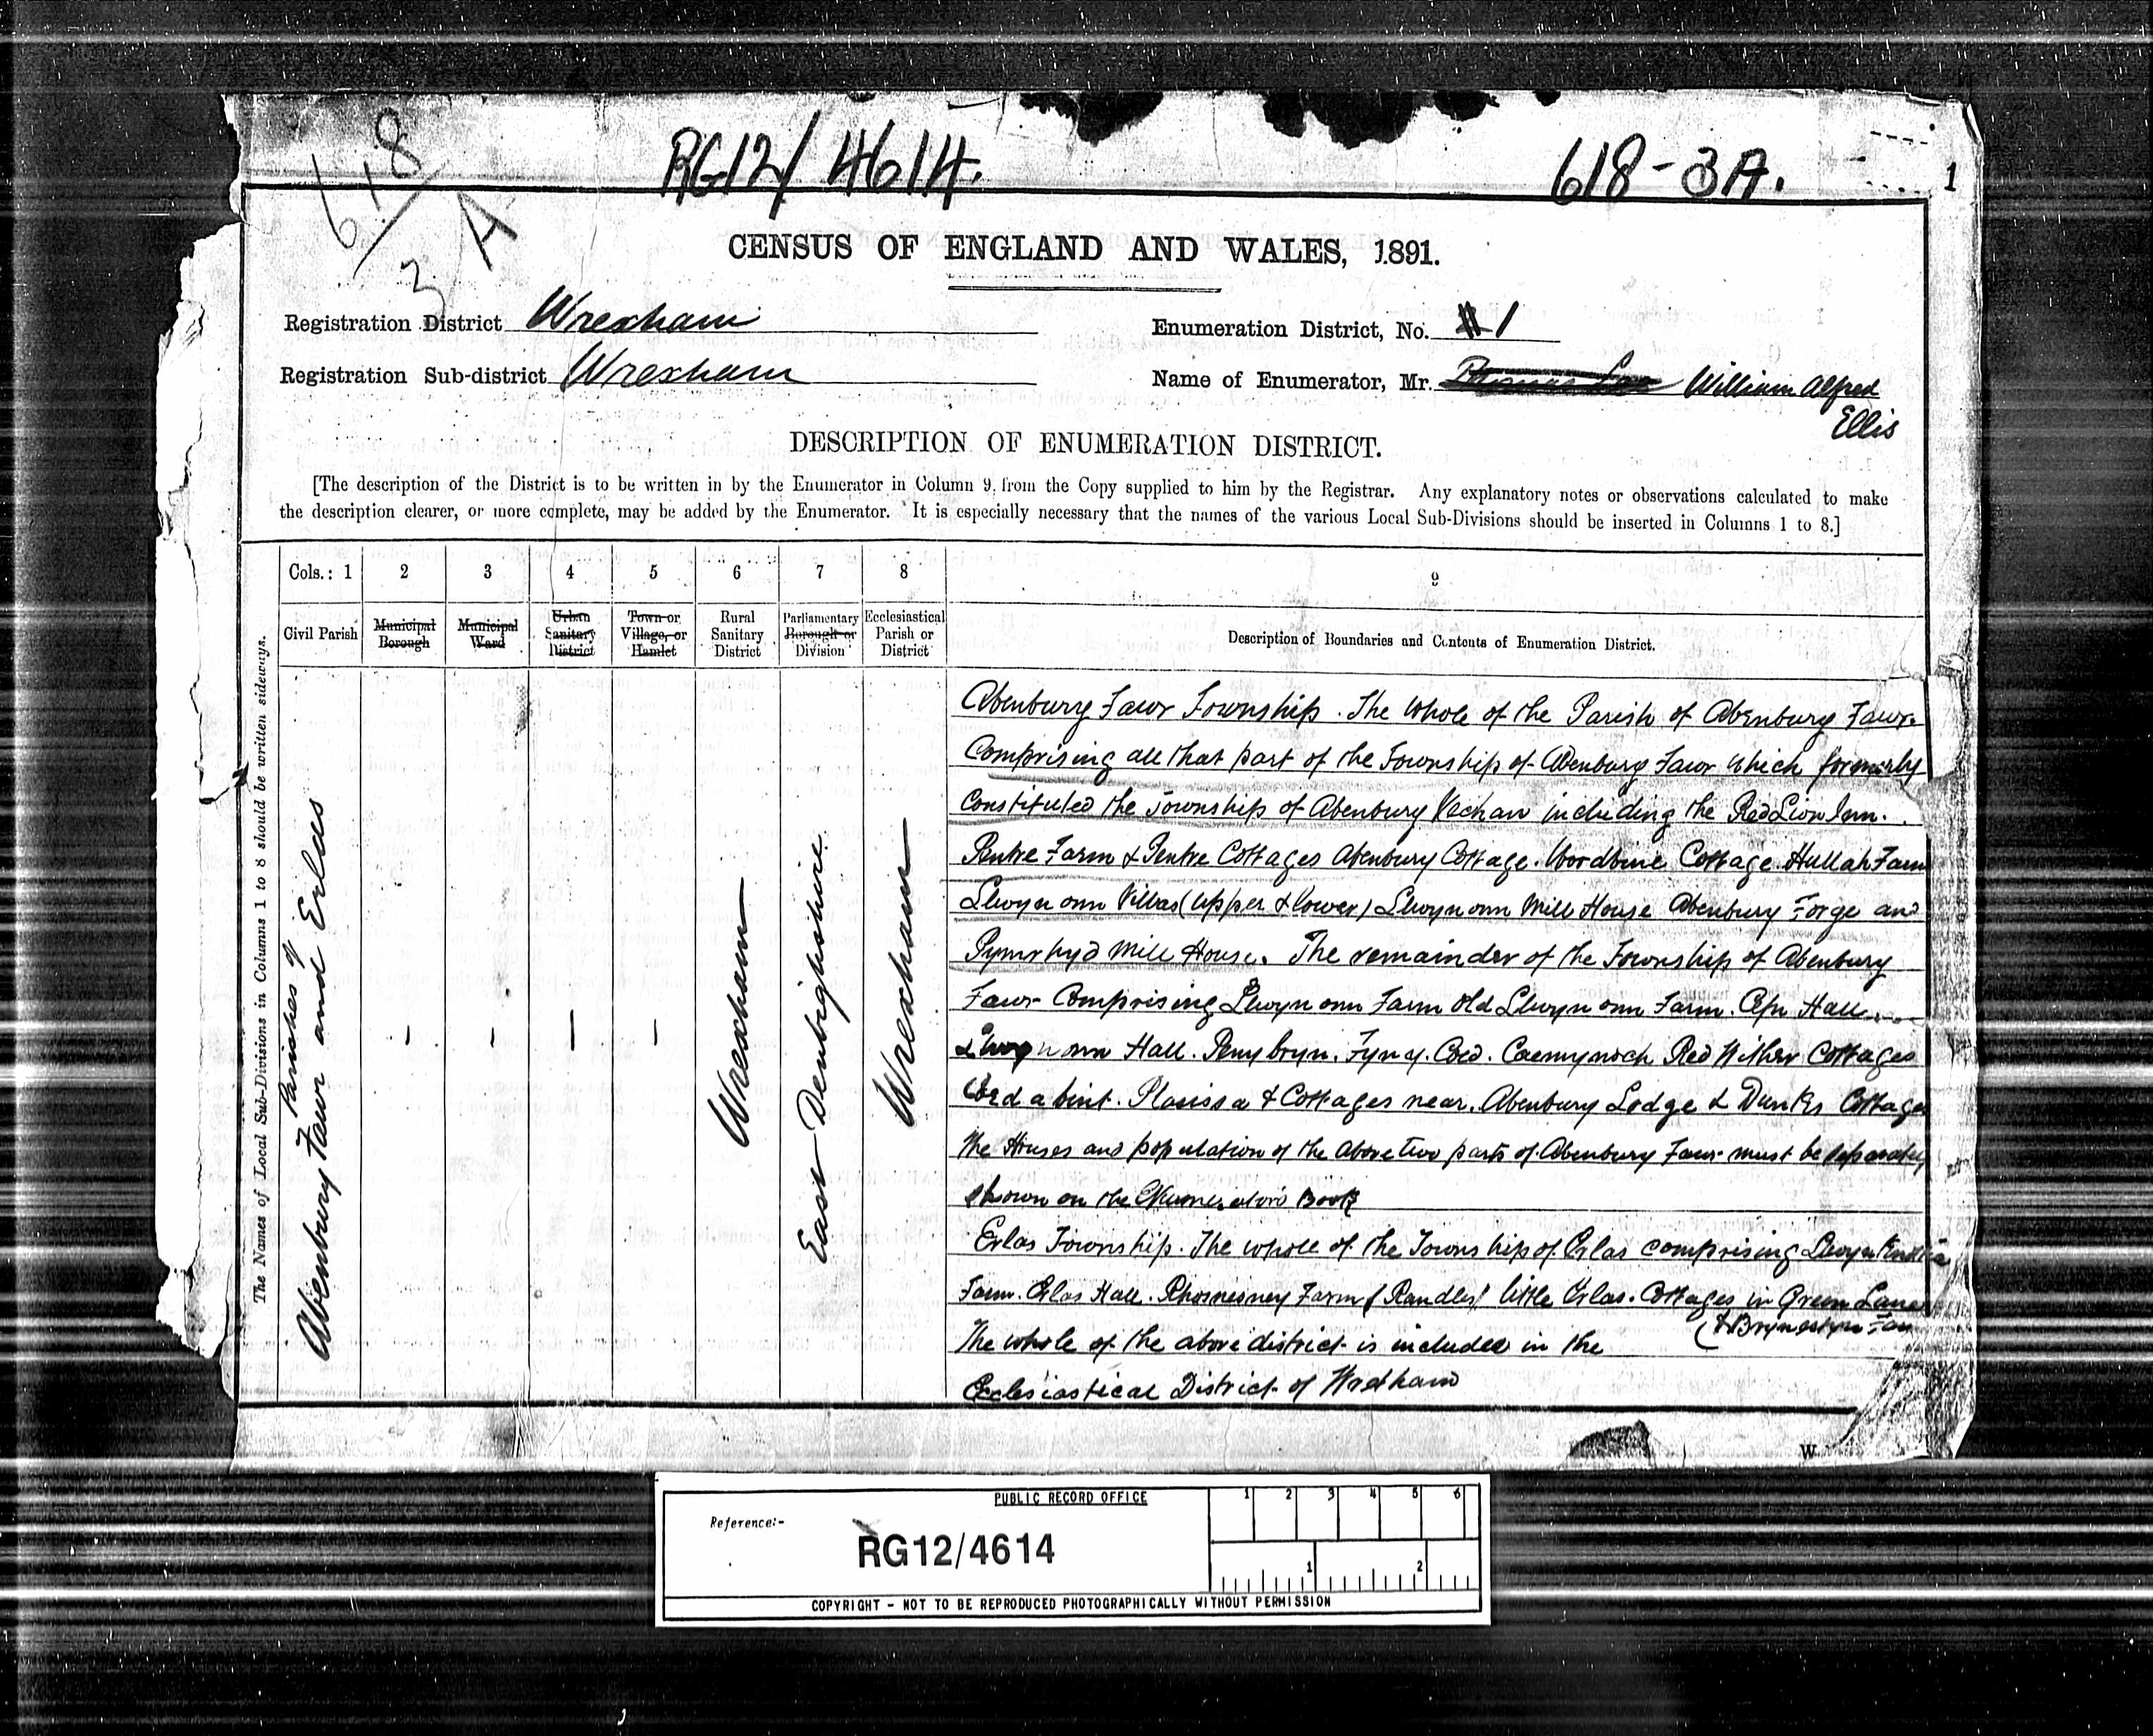 618
3 A
RG12/ 4614.
618-3A.
1
CENSUS OF ENGLAND AND WALES, 1891.
Registration District Wrexham
Enumeration District, No. 1
Registration Sub-district Wrexham
Name of Enumerator, Mr. William Alfred
Ellis
DESCRIPTION OF ENUMERATION DISTRICT.
[The description of the District is to be written in by the Enumerator in Column 9, from the Copy supplied to him by the Registrar. Any explanatory notes or observations calculated to make
the description clearer, or more complete, may be added by the Enumerator. It is especially necessary that the names of the various Local Sub-Divisions should be inserted in Columns 1 to 8.]
The Names of Local Sub-Divisions in Columns 1 to 8 should be written sideways.
Cols.: 1 2 3 4 5 6 7 8 9
Civil Parish
Municipal Borough
Municipal Ward
Urban Sanitary District
Town or Village, or Hamlet
Rural Sanitary District
Parliamentary Borough or Division
Ecclesiastical Parish or District
Description of Boundaries and Contents of Enumeration District.
Parishes of
Abenbury Fawr and Erlas
- - - -
Wrexham
East Denbighshire
Wrexham
Abenbury Fawr Township. The whole of the Parish of Abenbury Fawr.
Comprising all that part of the Township of Abenbury Fawr which formerly
Constituted the Township of Abenbury Vechan including the Red Lion Inn.
Pentre Farm & Pentre Cottages Abenbury Cottage. Woodbine Cottage. Hullah Farm
Llwyn onn Villas (Upper & lower) Llwyn onn Mill House Abenbury Forge and
Mill House. The remainder of the Township of Abenbury
Fawr Comprising Llwyn onn Farm Old Llwyn onn Farm. Cefn Hall
Llwyn onn Hall. Penybryn. Tyn y Coed. Caemynach Red Wither Cottages
Plasissa & Cottages near. Abenbury Lodge & Dunks Cottages
The Houses and population of the above two parts of Abenbury Fawr must be separately
shown on the Enumerator's Book
Erlas Township. The whole of the Township of Erlas comprising Llwyn
Farm. Erlas Hall. Rhosnesney Farm (Randles) little Erlas. Cottages in Green Lane
(& Brynestyn Far
The whole of the above district is included in the
Ecclesiastical District of Wrexham
W
PUBLIC RECORD OFFICE
Reference:-
RG12/4614
1 2 3 4 5 6
1 2
COPYRIGHT - NOT TO BE REPRODUCED PHOTOGRAPHICALLY WITHOUT PERMISSION